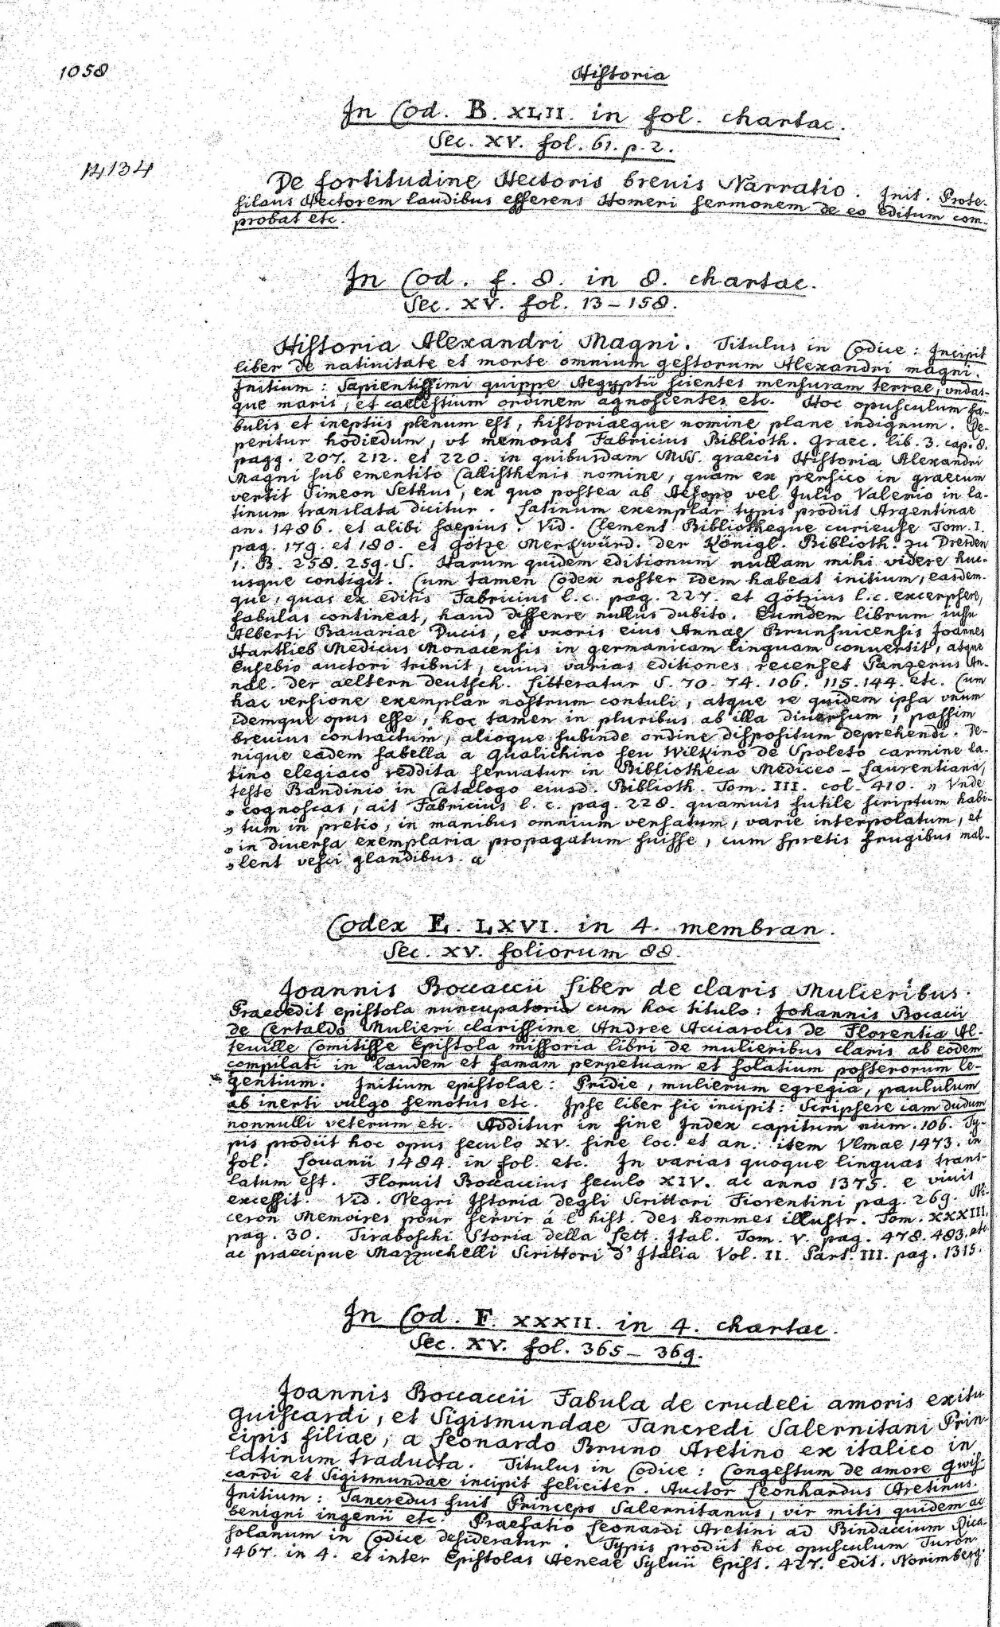 1058
Historia
In Cod. B. XLII. in fol. chartac.
Sec. XV. fol. 61. p. 2.
14134
De fortitudine Hectoris brevis Narratio. Init. Prote-
silaus Hectorem laudibus efferens Homeri sermonem de eo editum com-
probat etc.
In Cod. f. 8. in 8. chartac.
Sec. XV. fol. 13-158.
Historia Alexandri Magni. Titulus in Codice: Incipit
liber de natiuitate et morte omnium gestorum Alexandri magni.
Initium: Sapientissimi quippe Aegyptii scientes mensuram terrae, vndas-
que maris, et caelestium ordinem agnoscentes etc. Hoc opusculum fa-
bulis et ineptiis plenum est, historiaeque nomine plane indignum. Re-
peritur hodiedum, vt memorat Fabricius Biblioth. Graec. lib. 3. cap. 8.
pagg. 207. 212. et 220. in quibusdam MSS. graecis Historia Alexandri
Magni sub ementito Callisthenis nomine, quam ex persico in graecum
vertit Simeon Sethus, ex quo postea ab Aesopo vel Julio Valerio in la-
tinum translata dicitur. Latinum exemplar typis prodiit Argentinae
an. 1486. et alibi saepius. Vid. Clement Bibliotheque curieuse Tom. I.
pag. 179. et 180. et Götze Merkwürd. der Königl. Biblioth. zu Dresden
1. B. 258. 259. S. Harum quidem editionum nullam mihi videre huc-
usque contigit. Cum tamen Codex noster idem habeat initium, easdem-
que, quas ex editis Fabricius l. c. pag. 227. et Götzius l. c. excerpsere,
fabulas contineat, haud differre nullus dubito. Eumdem librum iussu
Alberti Bauariae Ducis, et vxoris eius Annae Brunsuicensis Joannes
Hartlieb Medicus Monacensis in germanicam linguam conuertit, atque
Eusebio auctori tribuit, cuius varias editiones recenset Panzerus An-
nal. der aeltern deutsch. Litteratur S. 70. 74. 106. 115. 144. etc. Cum
hac versione exemplar nostrum contuli, atque re quidem ipsa vnum
idemque opus esse, hoc tamen in pluribus ab illa diuersum, passim
breuius contractum, alioque subinde ordine dispositum deprehendi. De-
nique eadem fabella a Qualichino seu Wilkino de Spoleto carmine la-
tino elegiaco reddita seruatur in Bibliotheca Mediceo-Laurentiana,
teste Bandinio in Catalogo eiusd. Biblioth. Tom. III. col. 410. „ Vnde
„ cognoscas, ait Fabricius l. c. pag. 228. quamuis futile scriptum habi-
„ tum in pretio, in manibus omnium versatum, varie interpolatum, et
„ in diuersa exemplaria propagatum fuisse, cum spretis frugibus mal-
„ lent vesci glandibus. “
Codex E. LXVI. in 4. membran.
Sec. XV. foliorum 88.
Joannis Boccaccii Liber de claris Mulieribus.
Praecedit epistola nuncupatoria cum hoc titulo: Johannis Bocacii
de Certaldo Mulieri clarissime Andree Acciarolis de Florentia Al-
teuille Comitisse Epistola missoria libri de mulieribus claris ab eodem
compilati in laudem et famam perpetuam et solatium posterorum le-
gentium. Initium epistolae: Pridie, mulierum egregia, paululum
ab inerti vulgo semotus etc. Ipse liber sic incipit: Scripsere iam dudum
nonnulli veterum etc. Additur in fine Index capitum num. 106. Ty-
pis prodiit hoc opus seculo XV. sine loc. et an. item Vlmae 1473. in
fol. Louanii 1484. in fol. etc. In varias quoque linguas trans-
latum est. Floruit Boccaccius seculo XIV. ac anno 1375. e viuis
excessit. Vid. Negri Istoria degli Scrittori Fiorentini pag. 269. Ni-
ceron Memoires pour servir à l'hist. des hommes illustr. Tom. XXXIII.
pag. 30. Tiraboschi Storia della Lett. Ital. Tom. V. pag. 478. 483. etc
ac praecipue Mazzuchelli Scrittori d'Italia Vol. II. Part. III. pag. 1315.
In Cod. F. XXXII. in 4. chartac.
Sec. XV. fol. 365-369.
Joannis Boccaccii Fabula de crudeli amoris exitu
Guiscardi, et Sigismundae Tancredi Salernitani Prin-
cipis filiae, a Leonardo Bruno Aretino ex italico in
latinum traducta. Titulus in Codice: Congestum de amore Gwis-
cardi et Sigismundae incipit feliciter. Auctor Leonhardus Aretinus.
Initium: Tancredus fuit Princeps Salernitanus, vir mitis quidem ac
benigni ingenii etc. Praefatio Leonardi Aretini ad Bindaccium Rica-
solanum in Codice desideratur. Typis prodiit hoc opusculum Turon.
1467. in 4. et inter Epistolas Aeneae Syluii Epist. 427. edit. Norimberg.